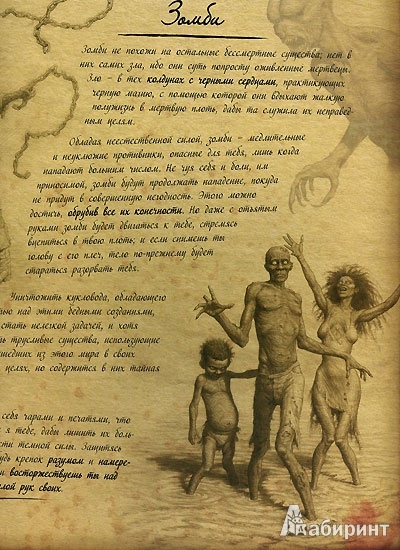 Зомби
Зомби не похожи на остальные бессмертные существа; нет в
них самих зла, ибо они суть попросту оживленные мертвецы.
Зло – в тех колдунах с черными сердцами, практикующих
черную магию, с помощью которой они вдыхают жалкую
полужизнь в мертвую плоть, дабы та служила их неправед-
ным целям.
Обладая неестественной силой, зомби – медлительные
и неуклюжие противники, опасные для тебя, лишь когда
нападают большим числом. Не чуя себя и боли, им
приносимой, зомби будут продолжать нападение, покуда
не придут в совершенную негодность. Этого можно
достичь, обрубив все их конечности. Но даже с отъятыми
руками зомби будет двигаться к тебе, стремясь
вцепиться в твою плоть; и если снимешь ты
голову с его плеч, тело по-прежнему будет
стараться разорвать тебя.
Уничтожить кукловода, обладающего
ью над этими бедными созданиями,
стать нелегкой задачей, и хотя
ь трусливые существа, использующие
шедших из этого мира в своих
целях, но содержится в них тайная
себя чарами и печатями, что
я тебе, дабы лишить их боль-
сти темной силы. Защитясь
удь крепок разумом и намере-
и восторжествуешь ты над
лой рук своих.
Лабиринт